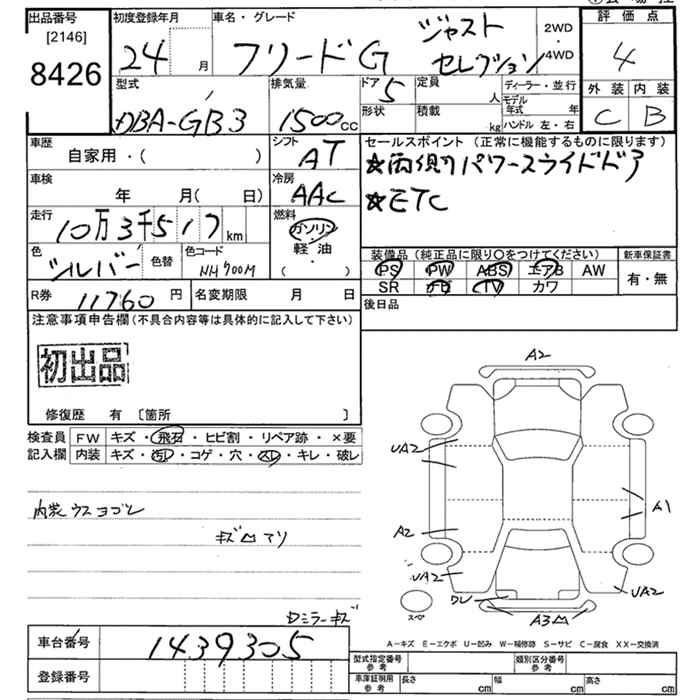 出品番号 初度登録年月 車名・グレード 2WD・4WD 評価点
[2146]
8426
24 月 フリードG ジャスト セレクション 4
型式 排気量 ドア 5 定員 人 ディーラー・並行 外装 内装
DBA-GB3 1500cc 形状 積載 kg モデル年式 年 C B
ハンドル 左・右
車歴 シフト セールスポイント (正常に機能するものに限ります)
自家用・( ) AT ★両側パワースライドドア
車検 冷房 ★ETC
年 月( 日) AAC
走行 燃料
10万3千517km ガソリン・軽油・( )
色 シルバー 色替 色コード NH700M
装備品 (純正品に限り○をつけてください) 新車保証書
PS PW ABS エアB AW 有・無
SR ナビ TV カワ
R券 11760円 名変期限 月 日 後日品
注意事項申告欄(不具合内容等は具体的に記入して下さい)
初出品
修復歴 有 [箇所 ]
検査員記入欄 FW キズ・飛石・ヒビ割・リペア跡・×要
内装 キズ・汚レ・コゲ・穴・スレ・キレ・破レ
内装ウスヨゴレ
キズ凹アリ
ロミラーキズ
A2
UA2
A1
A2
UA2
UA2
スペア
A3凹
A-キズ E-エクボ U-凹み W-補修跡 S-サビ C-腐食 XX-交換済
車台番号 1439305
登録番号
型式指定番号 参考 類別区分番号 参考
車庫証明用 参考 長さ cm 幅 cm 高さ cm